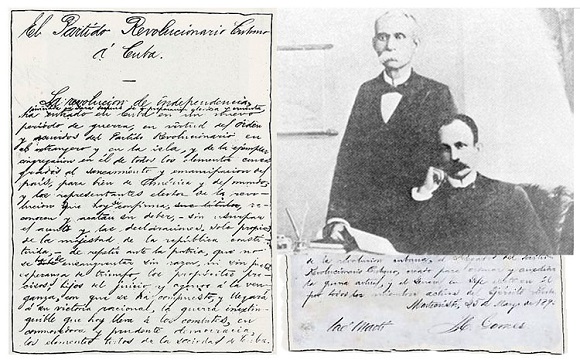 El Partido Revolucionario Cubano
á Cuba.
La revolución de independencia,
iniciada en Yara después de preparación gloriosa y cruenta,
ha entrado en Cuba en un nuevo
período de guerra, en virtud del orden
y acuerdos del Partido Revolucionario en
el extranjero y en la isla, y de la ejemplar
congregación en él de todos los elementos consa
grados al saneamiento y emancipación del
país, para bien de América y del mundo;
y los representantes electos de la revo
lución que hoy se confirma, reco
nocen y acatan su deber, - sin usurpar
el acento y las declaraciones, solo propias
de la majestad de la república consti
tuida, - de repetir ante la patria, que no
se ha de ensangrentar sin razón, ni sin justa
esperanza de triunfo, los propósitos pre
cisos, hijos del juicio y agenos á la ven
ganza, con que se ha compuesto, y llegará
á su victoria racional, la guerra inextin
guible que hoy lleva á los combates, en
conmovedora y prudente democracia,
los elementos todos de la sociedad de Cuba.
de la revolución
Revolucionario Cubano, creado para
guerra actual, y el
Montecristi, 25 de Marzo de 189
José Martí M. Gomez